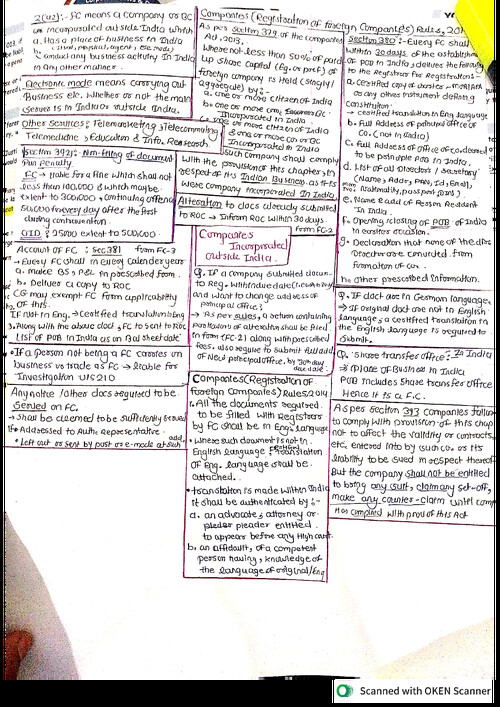 2(42):- FC means a company or BC
incorporated outside India which
a. Has a place of business in India
b. physical, agent, elec. mode
c. conduct any business activity in India
in any other manner.
Electronic mode means carrying out
Business etc. whether or not the main
server is in India or outside India.
Other sources: Telemarketing, Telecommuting
Telemedicine, Education & Info. Research
Section 392:- Non-filing of document
Pun penalty
FC → liable for a fine which shall not
less than 100,000 & which may be
extent to 300,000, continuing offence
50,000 for every day after the first
during contravention
OID :- 25000 extent to 500,000
Account of FC :- Sec 381 form FC-3
→ Every FC shall in every calender year
a. make BS, P&L in prescribed form.
b. Deliver a copy to ROC
CG may exempt FC from applicability
of this.
If not in Eng. → certified translation in Eng
3. Along with the above doc, FC to sent to ROC
list of POB in India as on Bal sheet date
• If a person not being a FC carries on
business or trade as FC → liable for
Investigation u/s 210
Any notice/other docs required to be
served on FC.
→ shall be deemed to be sufficiently served
if • Addressed to Auth. Representative.
• left out or sent by post or e-mode at such add.
Companies (Registration of Foreign Companies) Rules, 2014
As per Section 379 of the companies
Act, 2013.
Where not less than 50% of paid
up share capital (Eq. or pref) of
foreign company is Held (singly/
aggregate) by:-
a. one or more citizen of India
b. one or more
Incorporated in India
c. one or more citizen of India
& one or more co. or BC
Incorporated in India
such company shall comply
with the provision of this chapter, in
respect of its Indian Business as if it
were company incorporated in India
Alteration to docs already submitted
to ROC → Inform ROC within 30 days
form FC-2
Companies
Incorporated
outside India.
Q. If a company submitted docum-
to Reg.
and want to change address of
principal office?
→ As per rules, a return containing
particulars of alteration shall be filed
in form (FC-2) along with prescribed
fees, also require to submit full add
of New principal office, by 30th day
Companies (Registration of
foreign Companies) Rules, 2014
1. All the documents required
to be filed with Registrar
by FC shall be in Eng. language
• Where such document is not in
English language, certified translation
of Eng. language shall be
attached.
• translation is made within India
it shall be authenticated by:-
a. an advocate, attorney or
pleader entitled
to appear before any High court.
b. an affidavit, of a competent
person having, knowledge of
the language of original/Eng
Section 380:- Every FC shall
within 30 days of the establishment
of POB in India, deliver the following
to the Registrar for Registration:-
a. certified copy of charter - MOA/AOA
or any other instrument defining
constitution.
→ certified translation in Eng language
b. full Address of principal office of
co. (not in India)
c. full Address of office of co. deemed
to be principle POB in India.
d. List of all Directors/secretary
(Name, Addr, PAN, Id, Email,
Nationality, passport, DOB)
e. Name & add of person Resident
in India.
f. Opening/closing of POB in India
in earlier occasion.
g. Declaration that none of the dirs
Director are convicted from
formation of co.
h. other prescribed information.
Q. if doct are in German language,
→ If original doct are not in English
language, a certified translation in
the English language is required to
submit.
Q. share transfer office:- In India
→ (place of Business in India
POB includes share transfer office
Hence it is a F.C.
As per section 393 companies failure
to comply with provision of this chap
not to affect the validity or contracts,
etc. entered into by such co. or its
liability to be sued in respect thereof
But the company shall not be entitled
to bring any suit, claim any set-off,
make any counter-claim until comp
Has complied with prov of this Act
Scanned with OKEN Scanner